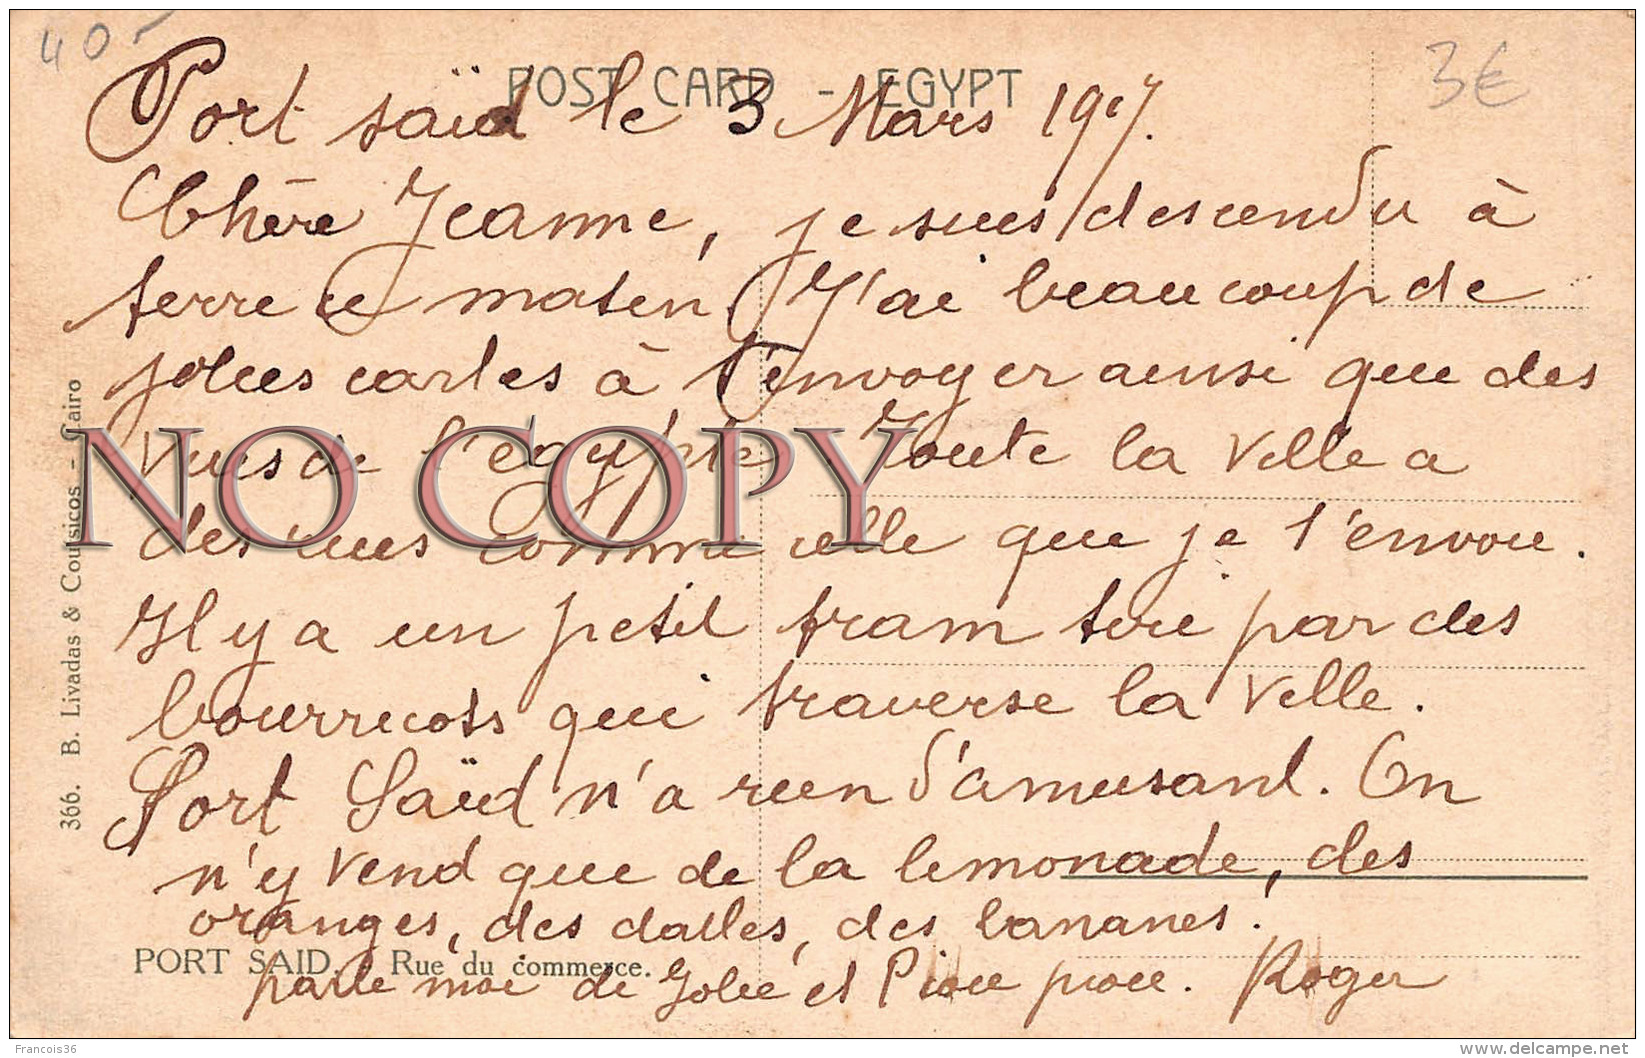 40-
3€
POST CARD - EGYPT
Port saïd le 3 Mars 1917.
Chère Jeanne, je suis descendu à
terre ce matin. J'ai beaucoup de
jolies cartes à t'envoyer ainsi que des
vues de l'egypte Toute la ville a
des rues comme celle que je t'envoie.
Il y a un petit tram tiré par des
bourricots qui traverse la ville.
Port Saïd n'a rien d'amusant. On
n'y vend que de la lemonade, des
oranges, des dattes, des bananes.
parle moi de Jolie et Piou piou. Roger
PORT SAID. Rue du commerce.
366. B. Livadas & Coutsicos - Cairo
NO COPY
Francois36
delcampe.net